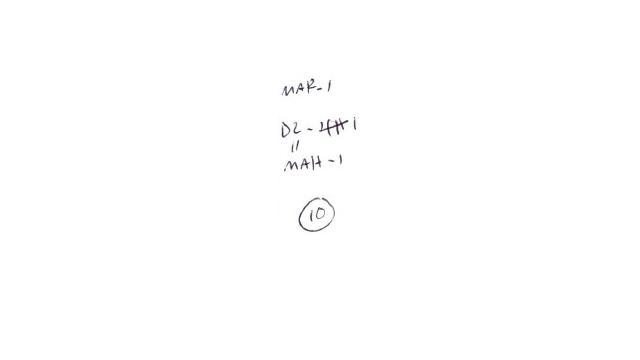 MAR-1
DZ - i
"
MAH-1
10